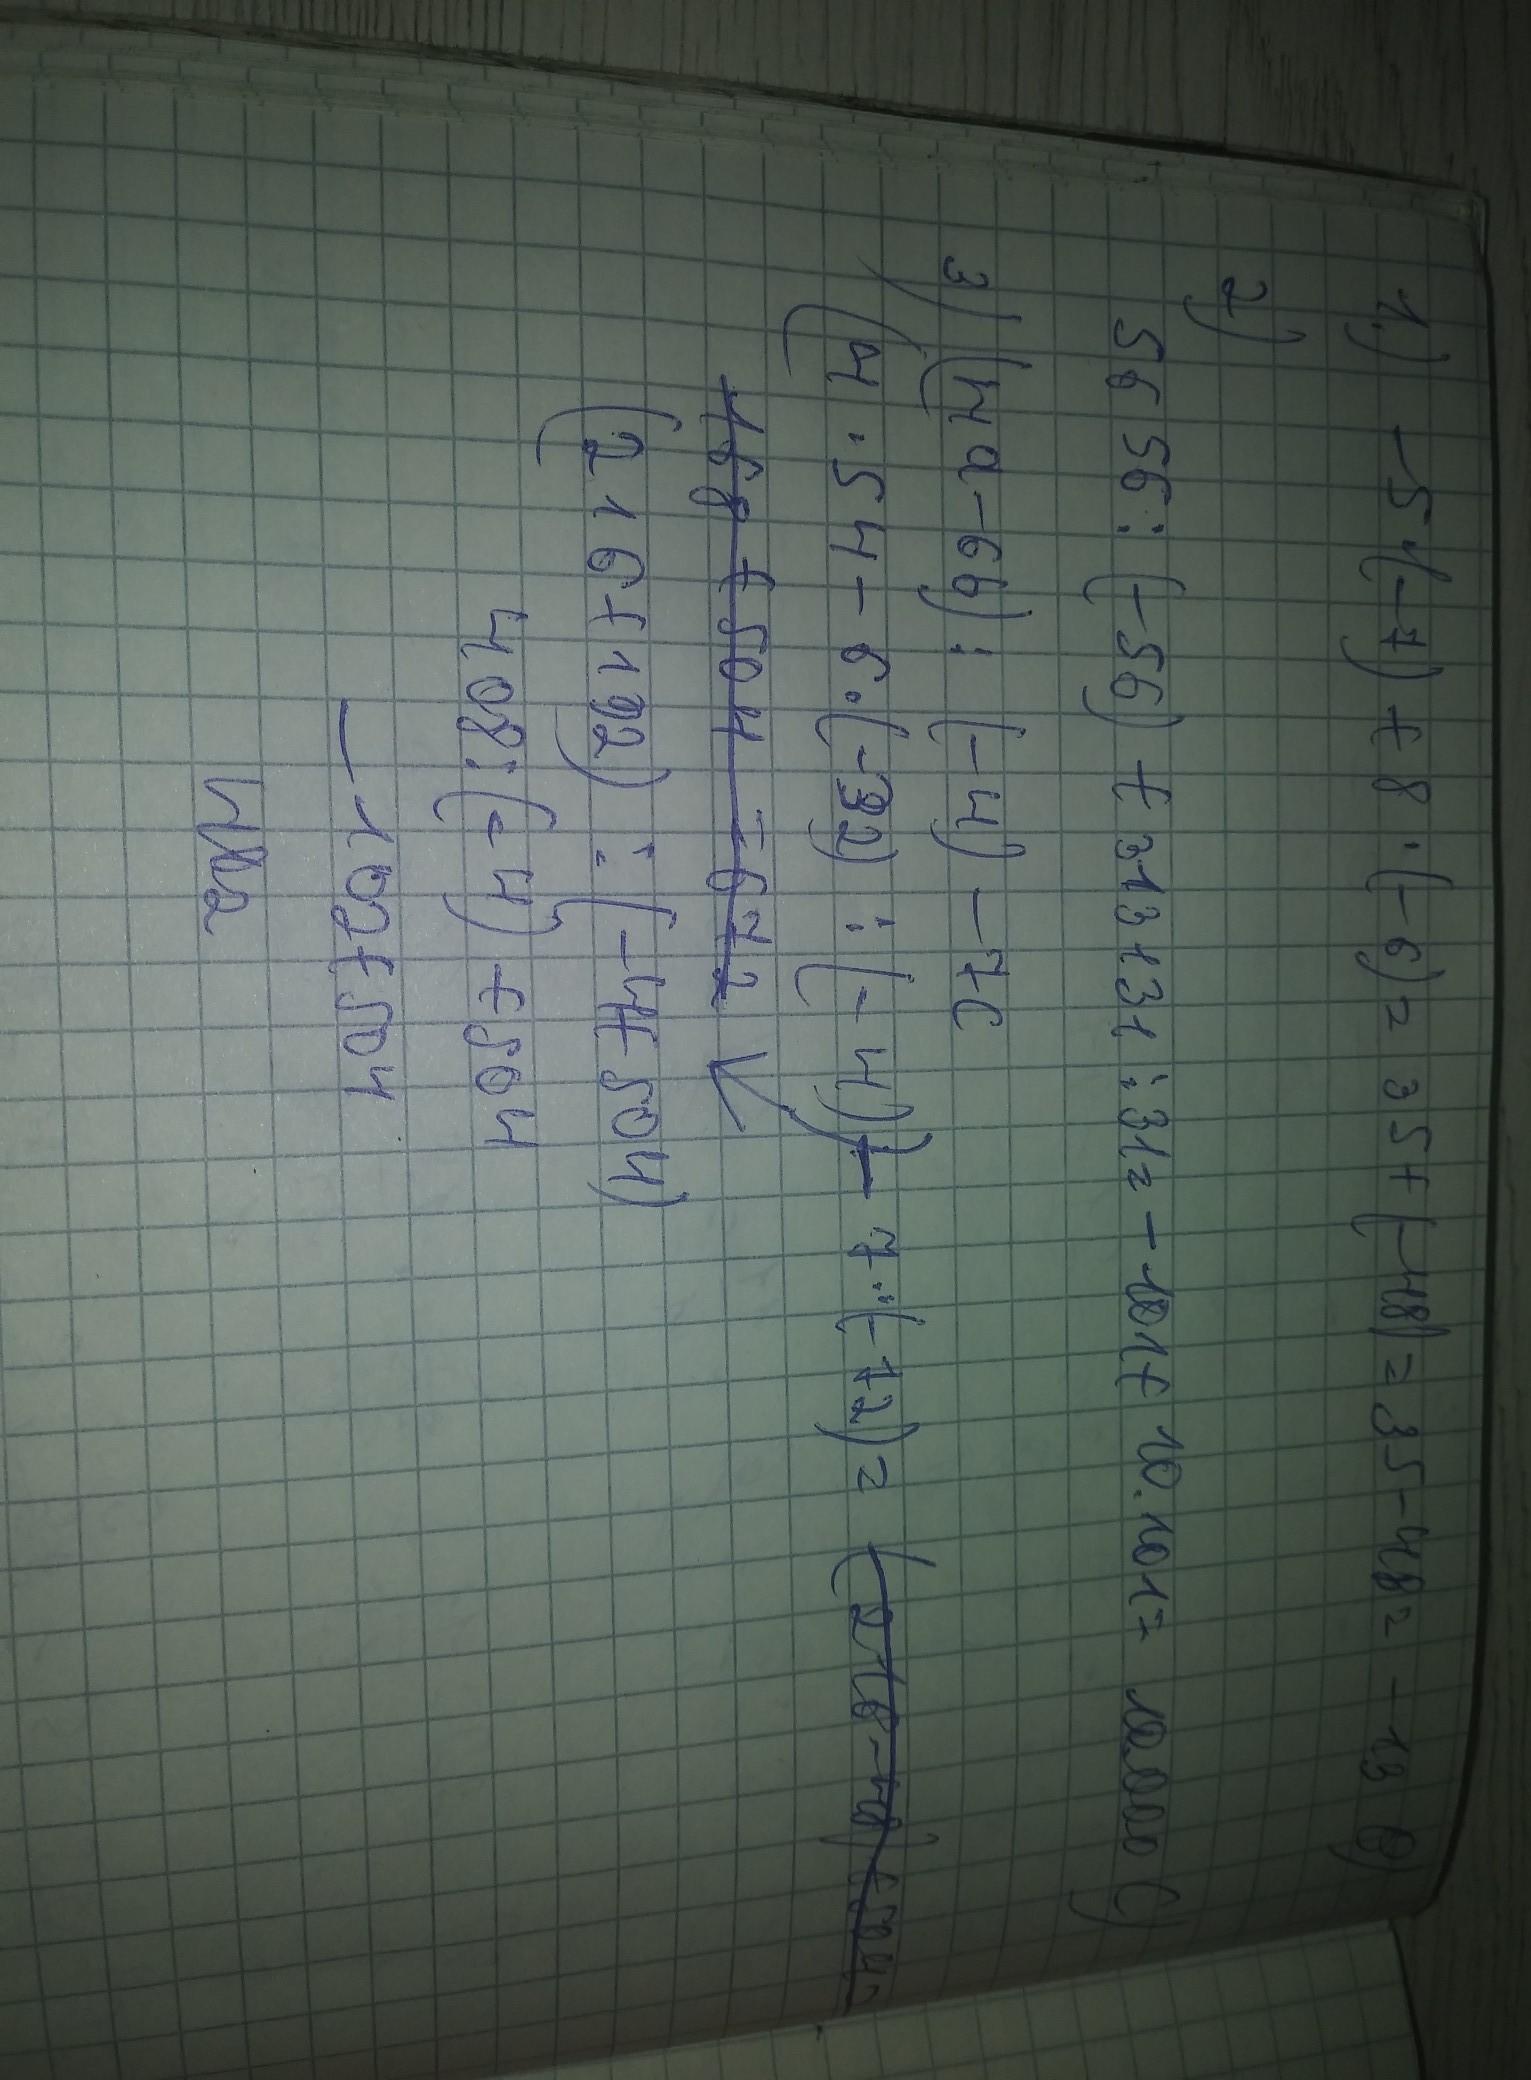 1.) -5·(-7)+8·(-6)=35+(-48)=35-48=-13 B)
2)
5656:(-56)+313131:31=-101+10.101=10.000 C)
3) (4a-6b):(-4)-7c
(4·54-6·(-32):(-4))-7·(-72)=
168+504=672
(216+192):(-4+504)
408:(-4)+504
-102+504
402